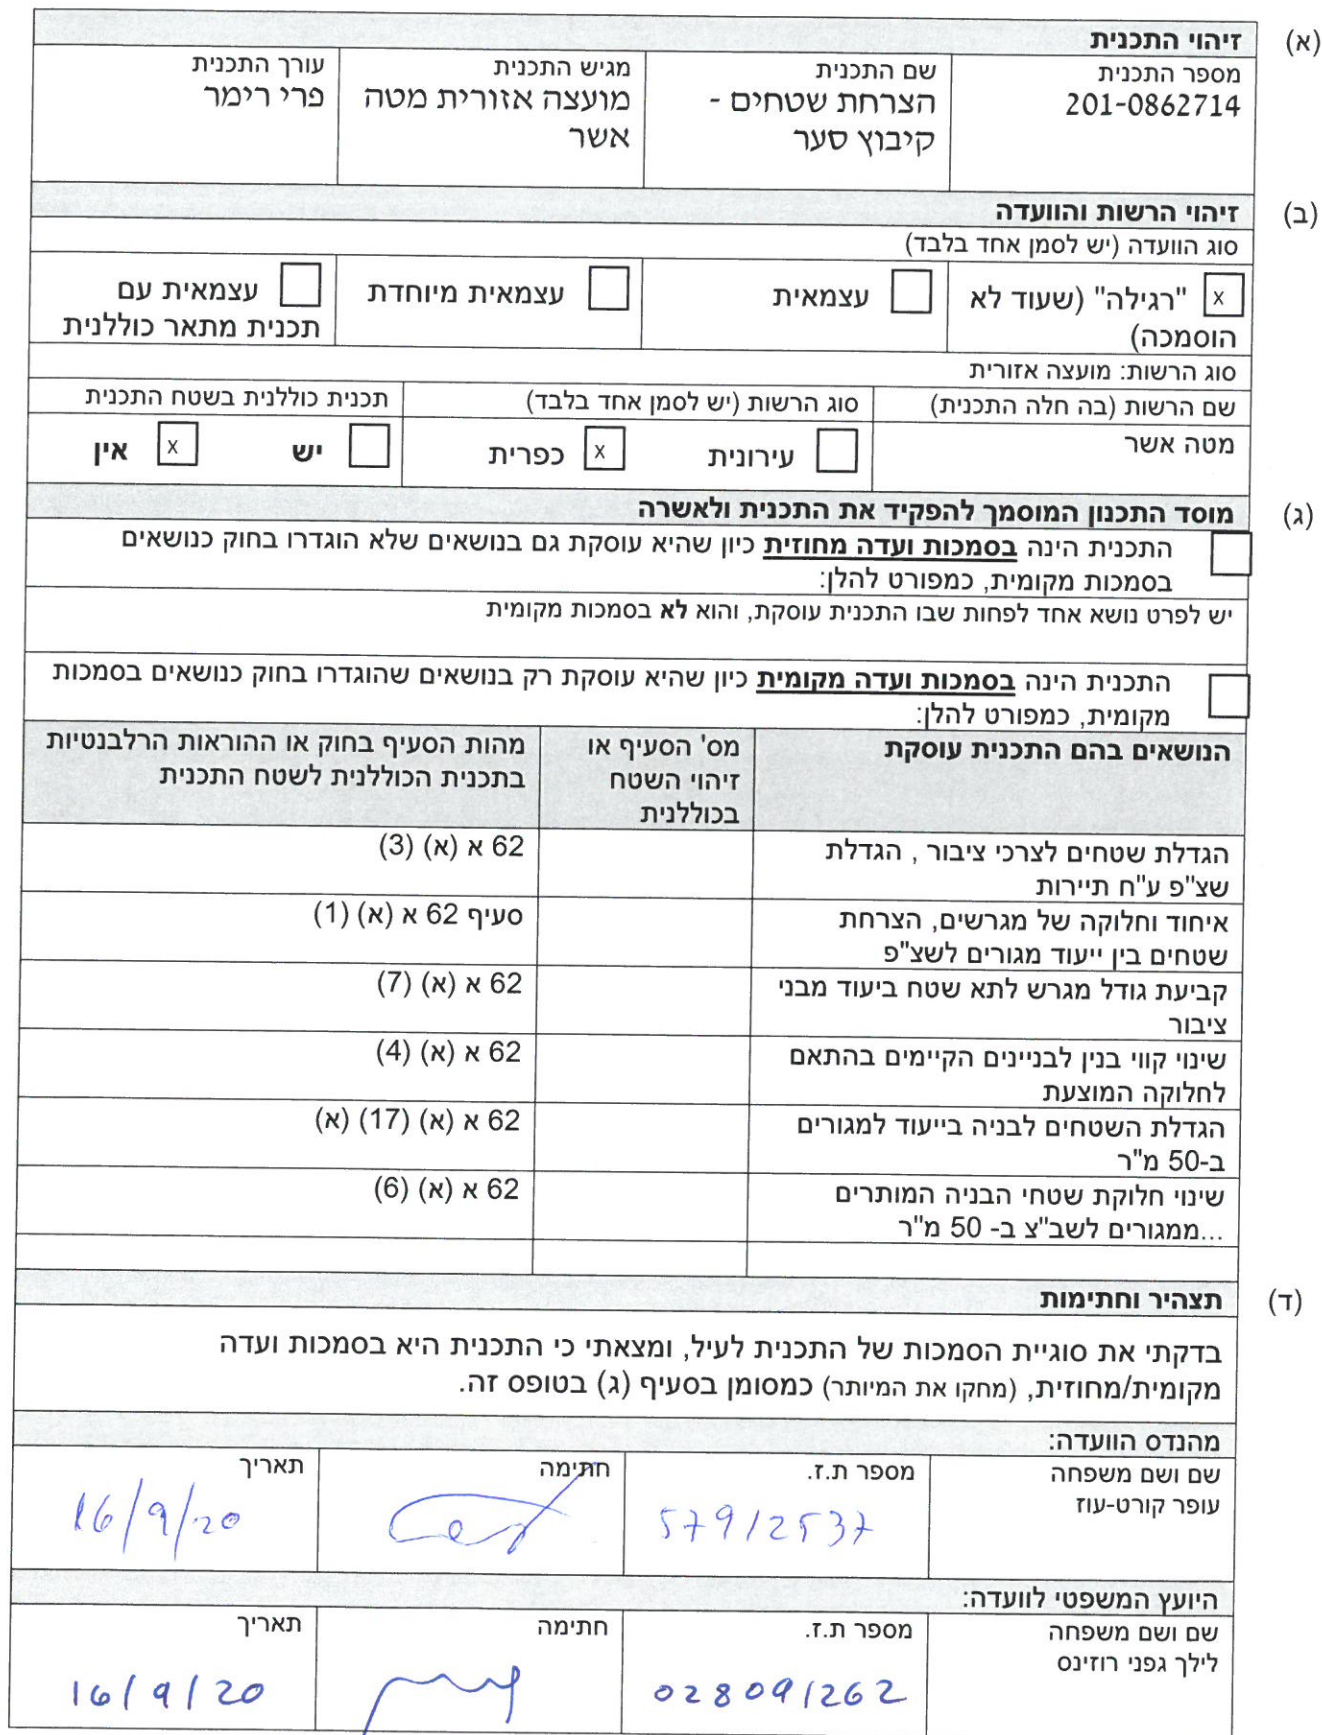 (א)
זיהוי התכנית
מספר התכנית
201-0862714
שם התכנית
הצרחת שטחים -
קיבוץ סער
מגיש התכנית
מועצה אזורית מטה
אשר
עורך התכנית
פרי רימר
(ב)
זיהוי הרשות והוועדה
סוג הוועדה (יש לסמן אחד בלבד)
x "רגילה" (שעוד לא
הוסמכה)
עצמאית
עצמאית מיוחדת
עצמאית עם
תכנית מתאר כוללנית
סוג הרשות: מועצה אזורית
שם הרשות (בה חלה התכנית)
סוג הרשות (יש לסמן אחד בלבד)
תכנית כוללנית בשטח התכנית
מטה אשר
עירונית
x כפרית
יש
x אין
(ג)
מוסד התכנון המוסמך להפקיד את התכנית ולאשרה
התכנית הינה בסמכות ועדה מחוזית כיון שהיא עוסקת גם בנושאים שלא הוגדרו בחוק כנושאים
בסמכות מקומית, כמפורט להלן:
יש לפרט נושא אחד לפחות שבו התכנית עוסקת, והוא לא בסמכות מקומית
התכנית הינה בסמכות ועדה מקומית כיון שהיא עוסקת רק בנושאים שהוגדרו בחוק כנושאים בסמכות
מקומית, כמפורט להלן:
הנושאים בהם התכנית עוסקת
מס' הסעיף או
זיהוי השטח
בכוללנית
מהות הסעיף בחוק או ההוראות הרלבנטיות
בתכנית הכוללנית לשטח התכנית
הגדלת שטחים לצרכי ציבור , הגדלת
שצ"פ ע"ח תיירות
62 א (א) (3)
איחוד וחלוקה של מגרשים, הצרחת
שטחים בין ייעוד מגורים לשצ"פ
סעיף 62 א (א) (1)
קביעת גודל מגרש לתא שטח ביעוד מבני
ציבור
62 א (א) (7)
שינוי קווי בנין לבניינים הקיימים בהתאם
לחלוקה המוצעת
62 א (א) (4)
הגדלת השטחים לבניה בייעוד למגורים
ב-50 מ"ר
62 א (א) (17) (א)
שינוי חלוקת שטחי הבניה המותרים
...ממגורים לשב"צ ב- 50 מ"ר
62 א (א) (6)
(ד)
תצהיר וחתימות
בדקתי את סוגיית הסמכות של התכנית לעיל, ומצאתי כי התכנית היא בסמכות ועדה
מקומית/מחוזית, (מחקו את המיותר) כמסומן בסעיף (ג) בטופס זה.
מהנדס הוועדה:
שם ושם משפחה
עופר קורט-עוז
מספר ת.ז.
57912537
חתימה
תאריך
16/9/20
היועץ המשפטי לוועדה:
שם ושם משפחה
לילך גפני רוזינס
מספר ת.ז.
028091262
חתימה
תאריך
16/9/20